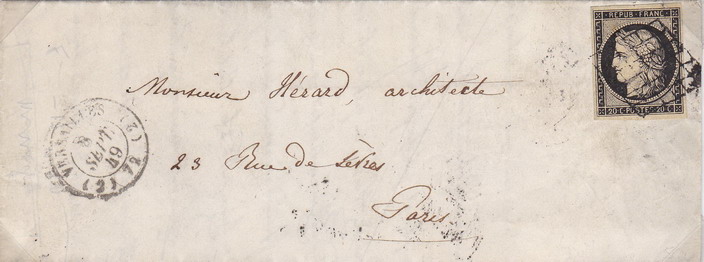 REPUB. FRANC.
20 C POSTES 20 C
Monsieur Hérard, architecte
VERSAILLES (2)
8
SEPT
49
(2) 72
23 Rue de Sèvres
Paris